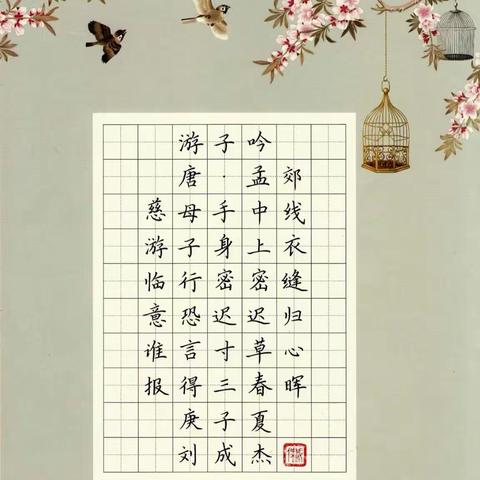 游子吟
唐·孟郊
慈母手中线
游子身上衣
临行密密缝
意恐迟迟归
谁言寸草心
报得三春晖
庚子夏
刘成杰